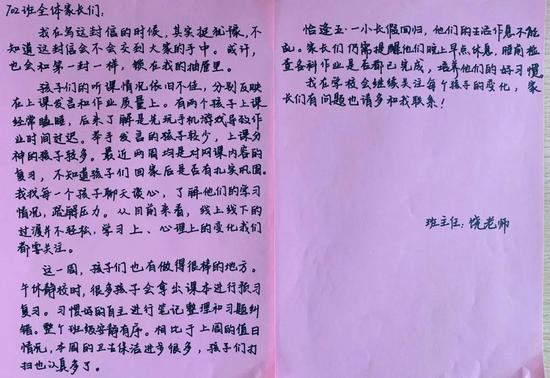 702班全体家长们：
我在写这封信的时候，其实挺犹豫，不
知道这封信会不会交到大家的手中。或许，
也会和第一封一样，锁在我的抽屉里。
孩子们的听课情况依旧不佳，分别反映
在上课发言和作业质量上。有两个孩子上课
经常瞌睡，后来了解是先玩手机游戏导致作
业时间过迟。举手发言的孩子较少，上课分
神的孩子较多。最近两周均是对网课内容的
复习，不知道孩子们回家后是否有扎实巩固。
我找每一个孩子聊天谈心，了解他们的学习
情况，疏解压力。从目前来看，线上线下的
过渡并不轻松，学习上、心理上的变化我们
都要关注。
这一周，孩子们也有做得很棒的地方。
午休静校时，很多孩子会拿出课本进行预习
复习。习惯好的自主进行笔记整理和习题纠
错。整个班级安静有序。相比于上周的值日
情况，本周的卫生保洁进步很多，孩子们打
扫也认真多了。
恰逢五·一小长假回归，他们的生活作息不能
乱。家长们仍需提醒他们晚上早点休息，睡前检
查各科作业是否都已完成，培养他们的好习惯。
我在学校会继续关注每个孩子的变化，家
长们有问题也请多和我联系！
班主任：饶老师